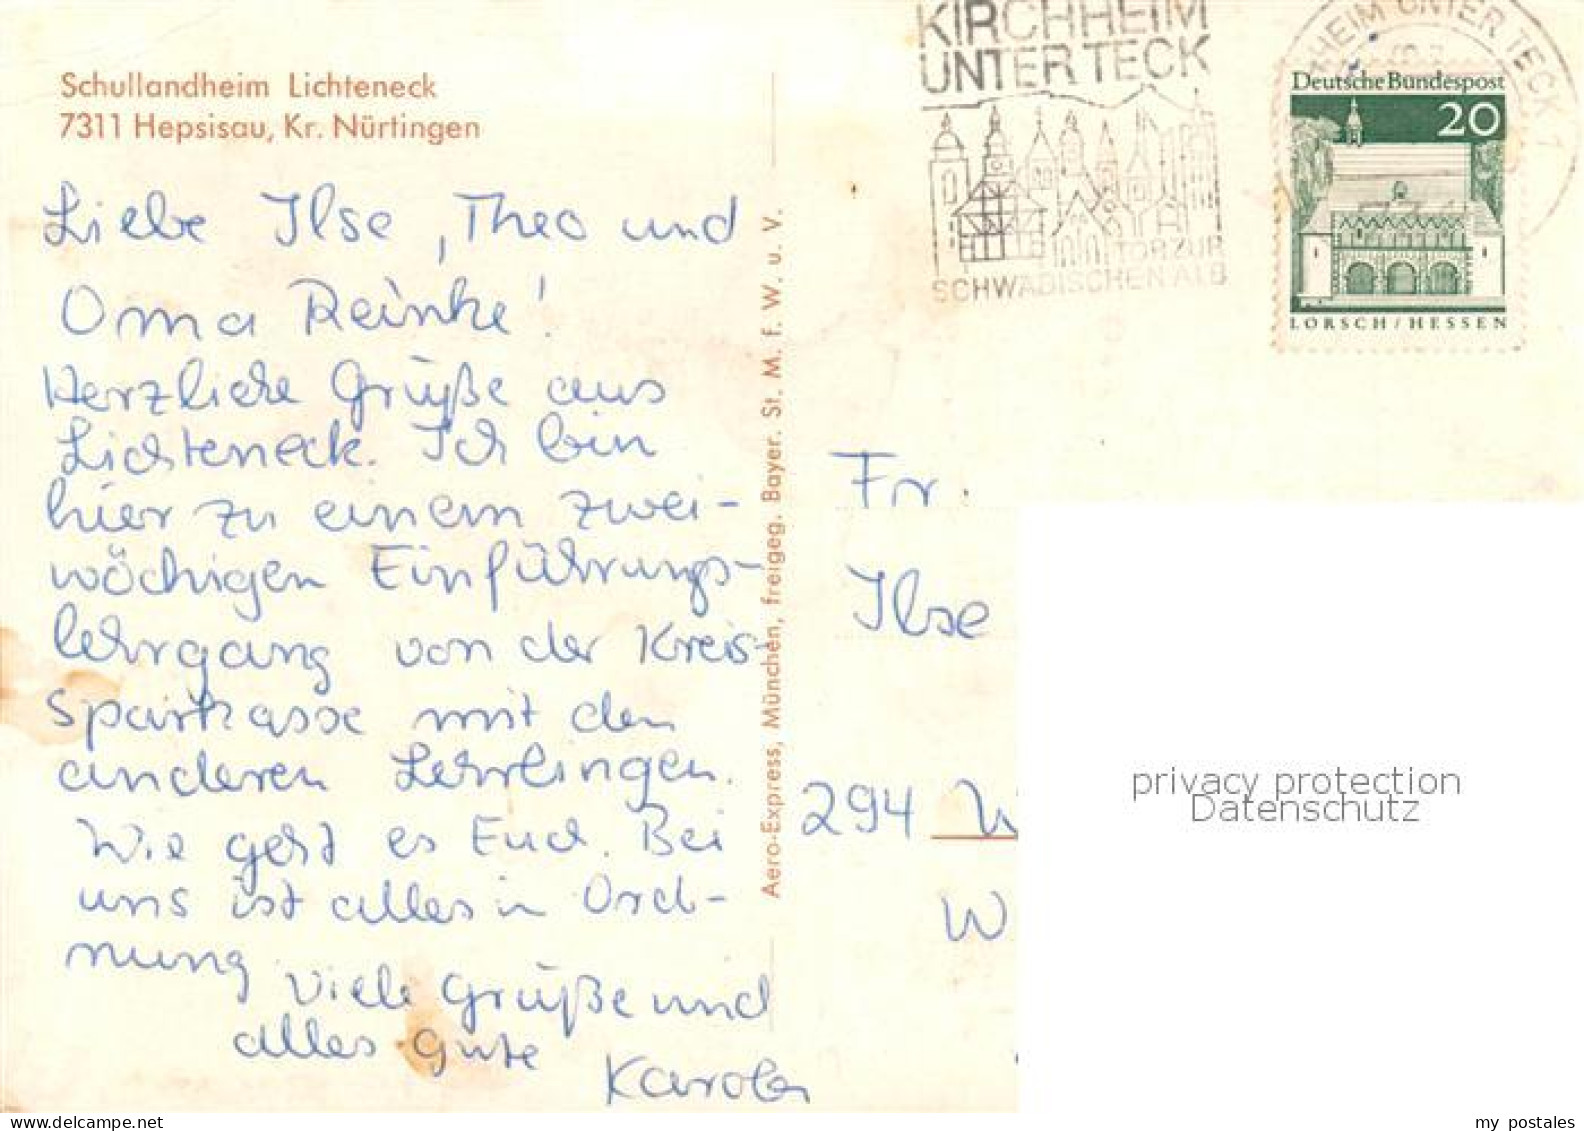 Schullandheim Lichteneck
7311 Hepsisau, Kr. Nürtingen
Liebe Ilse, Theo und
Oma Reinke!
Herzliche Grüße aus
Lichteneck. Ich bin
hier zu einem zwei-
wöchigen Einführungs-
lehrgang von der Kreis-
sparkasse mit den
anderen Lehrlingen.
Wie geht es Euch. Bei
uns ist alles in Ord-
nung
Viele Grüße und
alles Gute
Aero-Express, München, freigeg. Bayer. St. M. f. W. u. V.
KIRCHHEIM
UNTER TECK
TOR ZUR
SCHWÄBISCHEN ALB
HEIM UNTER TECK 1
Deutsche Bundespost
20
LORSCH/HESSEN
Fr.
Ilse
294 W
W
privacy protection
Datenschutz
delcampe.net
my postales